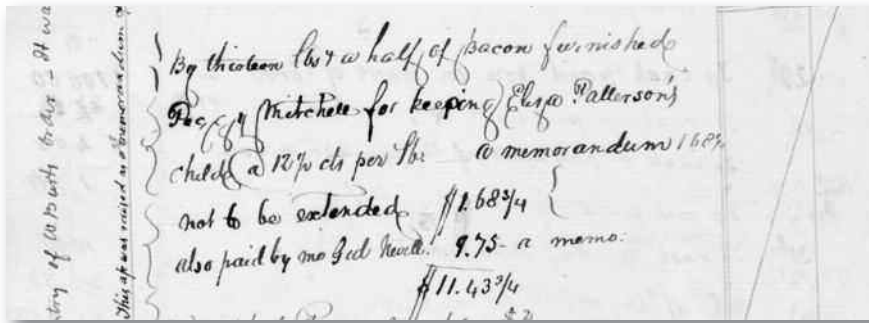 By thirteen lbs & a half of Bacon furnished
Peggy Mitchell for keeping Eliza Patterson's
child a 12½ cts per lbs a memorandum 1.68¾
not to be extended $1.68¾
also paid by me Ged Nevell. 9.75 - a memo.
$11.43¾
This a/c was raised as a memorandum
of W Burts order - It was